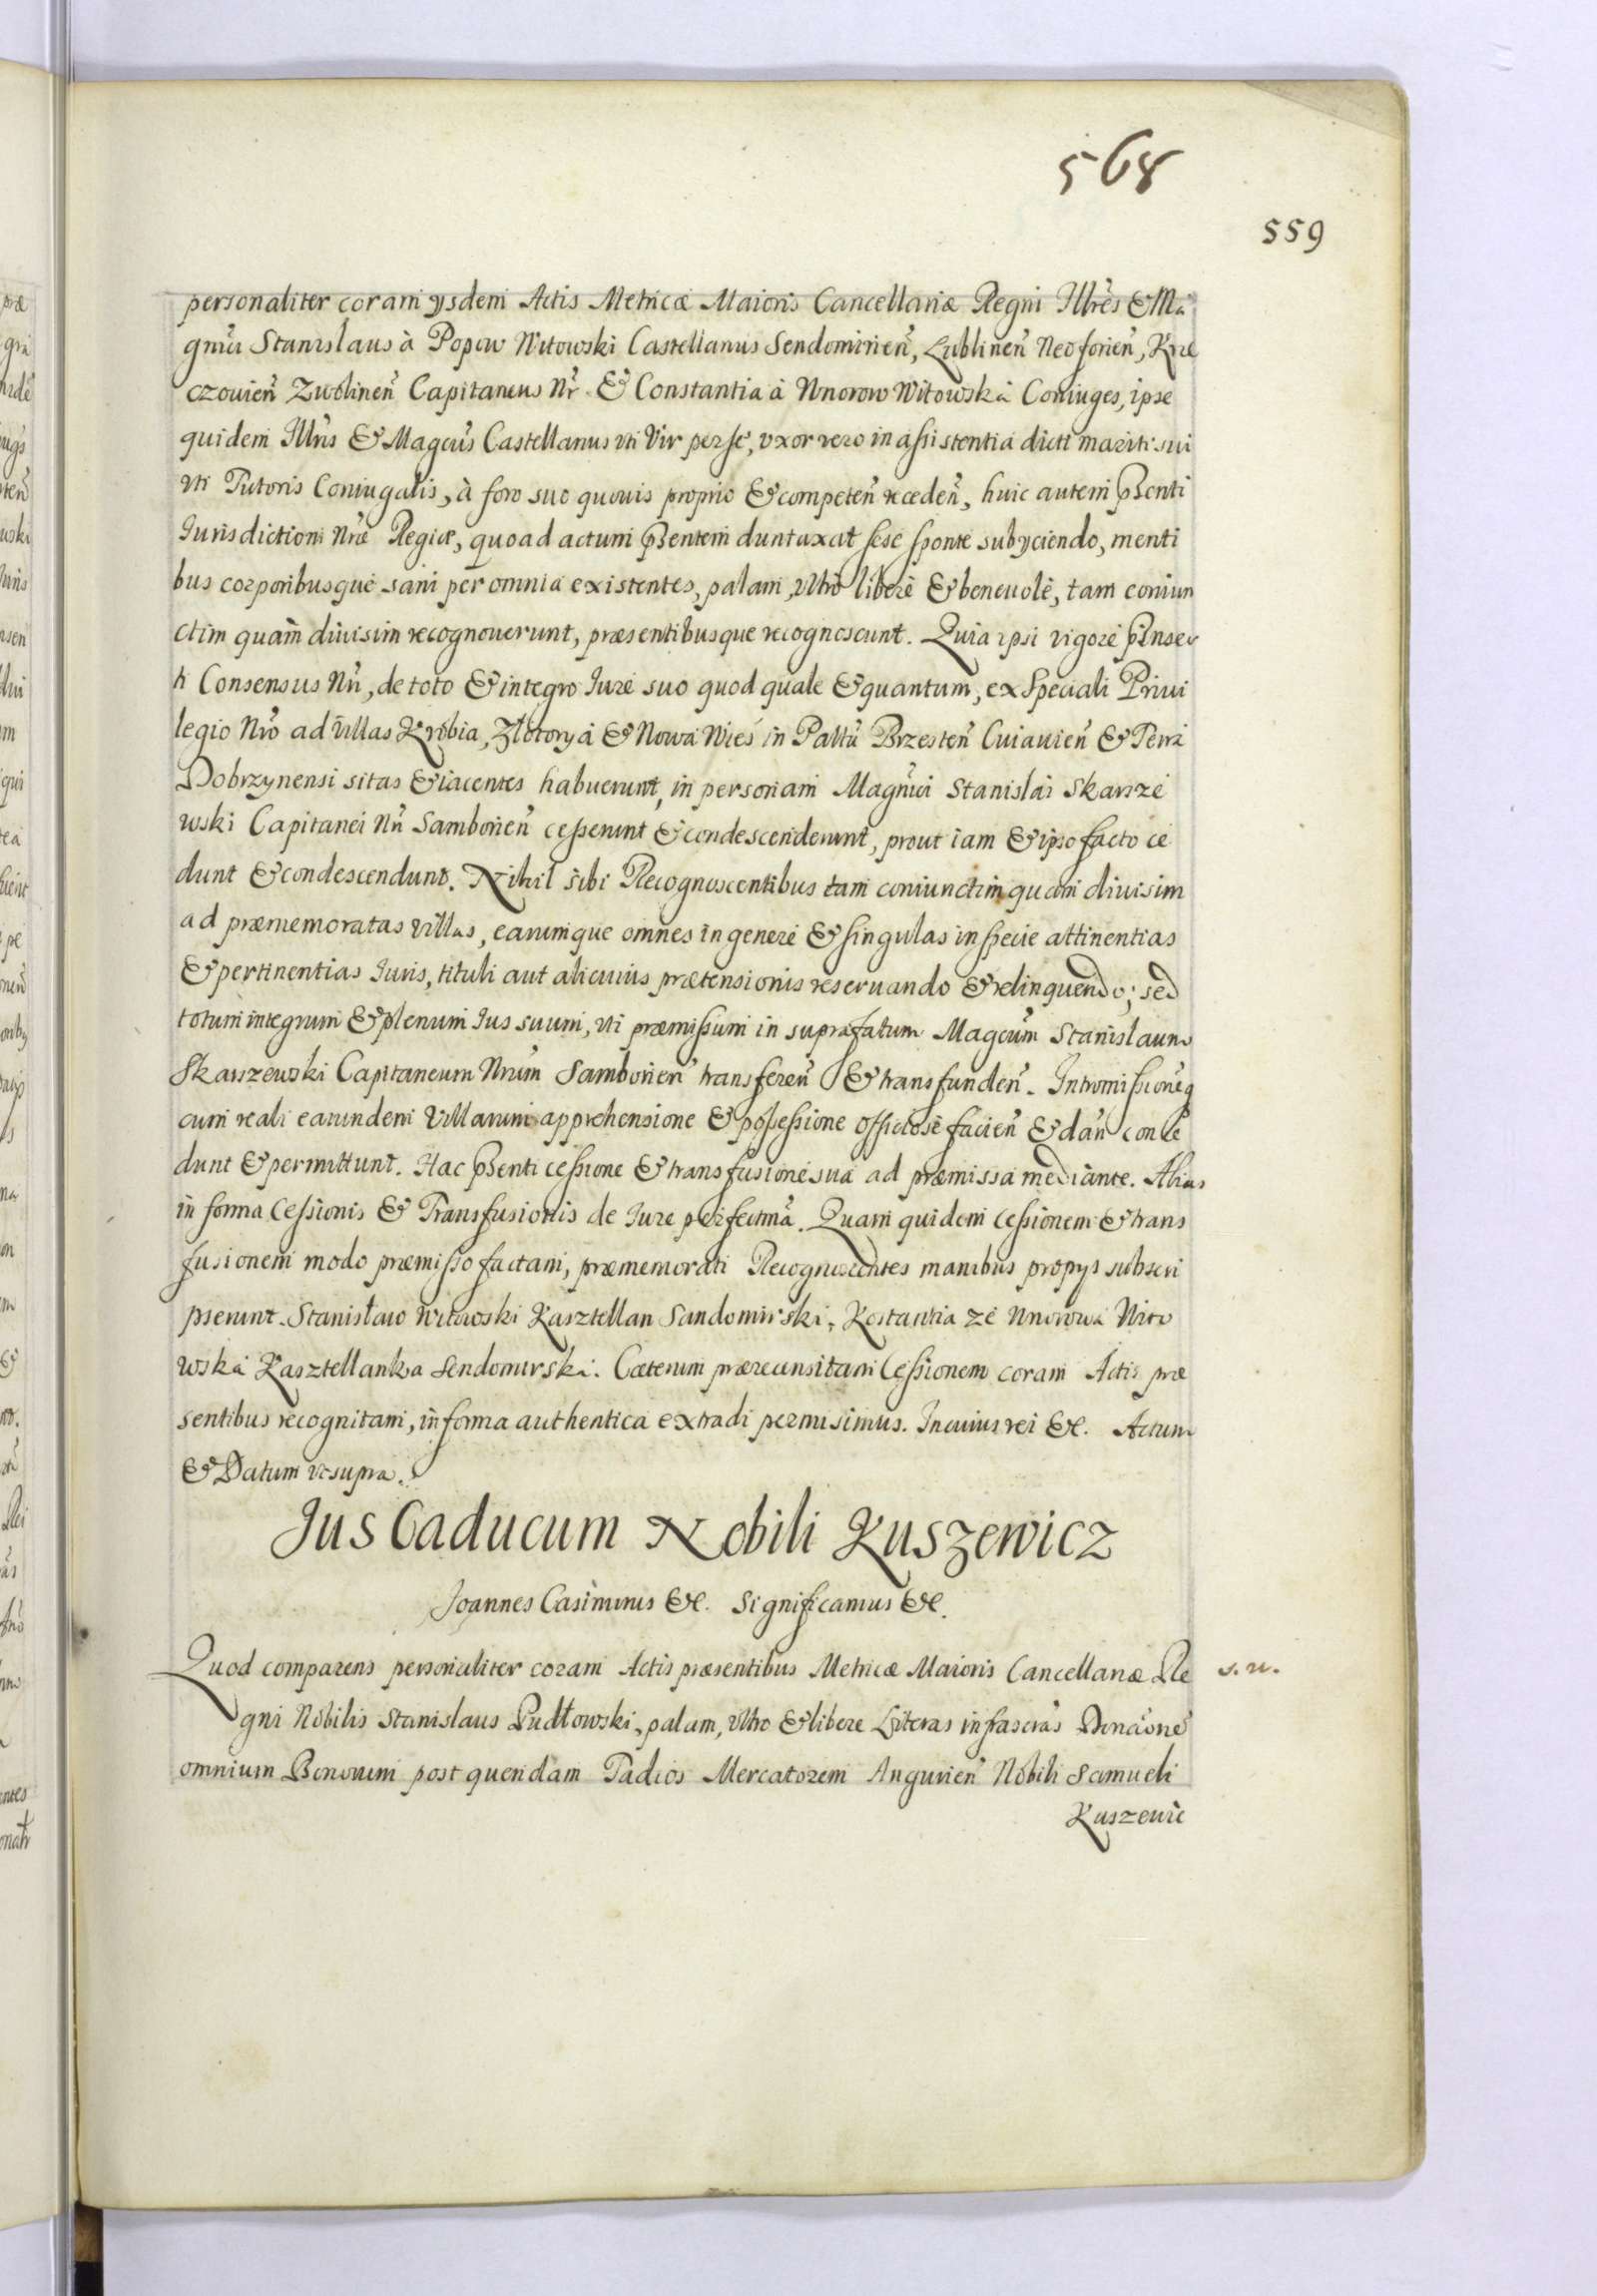 568
559
personaliter coram ysdem Actis Metricæ Maioris Cancellariæ Regni Illr̃es & Ma
gnĩci Stanislaus à Popow Witowski Castellanus Sendomirieñ, Lublineñ Neoforieñ, Krze
czouieñ Zwolineñ Capitaneus Nr̃ & Constantia à Wnorow Witowska Coniuges, ipse
quidem Illr̃is & Magcũs Castellanus uti Vir per se, uxor vero in assistentia dicti mariti sui
uti Tutoris Coniugalis, à foro suo quouis proprio & competeñ recedeñ, huic autem pñti
Iurisdictioni Nr̃æ Regiæ, quoad actum pñtem duntaxat sese sponte subyciendo, menti
bus corporibusque sani per omnia existentes, palam, ultro liberè & beneuolè, tam coniun
ctim quàm diuisim recognouerunt, præsentibusque recognoscunt. Quia ipsi vigore pĩnser
ti Consensus Nr̃i, de toto & integro Iure suo quod quale & quantum, ex speciali Priui
legio Nr̃o ad Villas Krobia, Złotorya & Nowa Wieś in Palttũ Brzesteñ Cuiauieñ & Terra
Dobrzynensi sitas & iacentes habuerunt, in personam Magnĩci Stanislai Skarsze
wski Capitanei Nr̃i Samborieñ cesserunt & condescenderunt, prout iam & ipso facto ce
dunt & condescendunt. Nihil sibi Recognoscentibus tam coniunctim quam diuisim
ad præmemoratas Villas, earumque omnes in genere & singulas in specie attinentias
& pertinentias Iuris, tituli aut alicuius prætensionis reseruando & relinquendo; sed
totum integrum & plenum Ius suum, uti præmissum in suprafatum Magcũm Stanislaum
Skarszewski Capitaneum Nr̃um Samborieñ transfereñ & transfundeñ. Intromissionẽq
cum reali earundem Villarum apprehensione & possessione officiosè facieñ & dañ conce
dunt & permittunt. Hac pñti cessione & transfusione sua ad præmissa mediante. Alias
in forma Cessionis & Transfusionis de Iure perfectma. Quam quidem cessionem & trans
fusionem modo præmisso factam, præmemorati Recognoscentes manibus propys subscri
pserunt. Stanisław Witowski Kasztellan Sandomirski, Kostantia ze Wnorowa Wito
wska Kasztellanka Sendomirska. Cæterum prærecensitam Cessionem coram Actis præ
sentibus recognitam, in forma authentica extradi permisimus. In cuius rei &c. Actum
& Datum ut supra.
Jus Caducum Nobili Kuszewicz
Joannes Casimirus &c. Significamus &c.
Quod comparens personaliter coram Actis præsentibus Metricæ Maioris Cancellariæ Re
s. n.
gni Nobilis Stanislaus Pudłowski, palam, ultro & libere Literas infrascr̃as Donãone
omnium Bonorum post quendam Tadios Mercatorem Angurieñ Nobili Samueli
Kuszewic